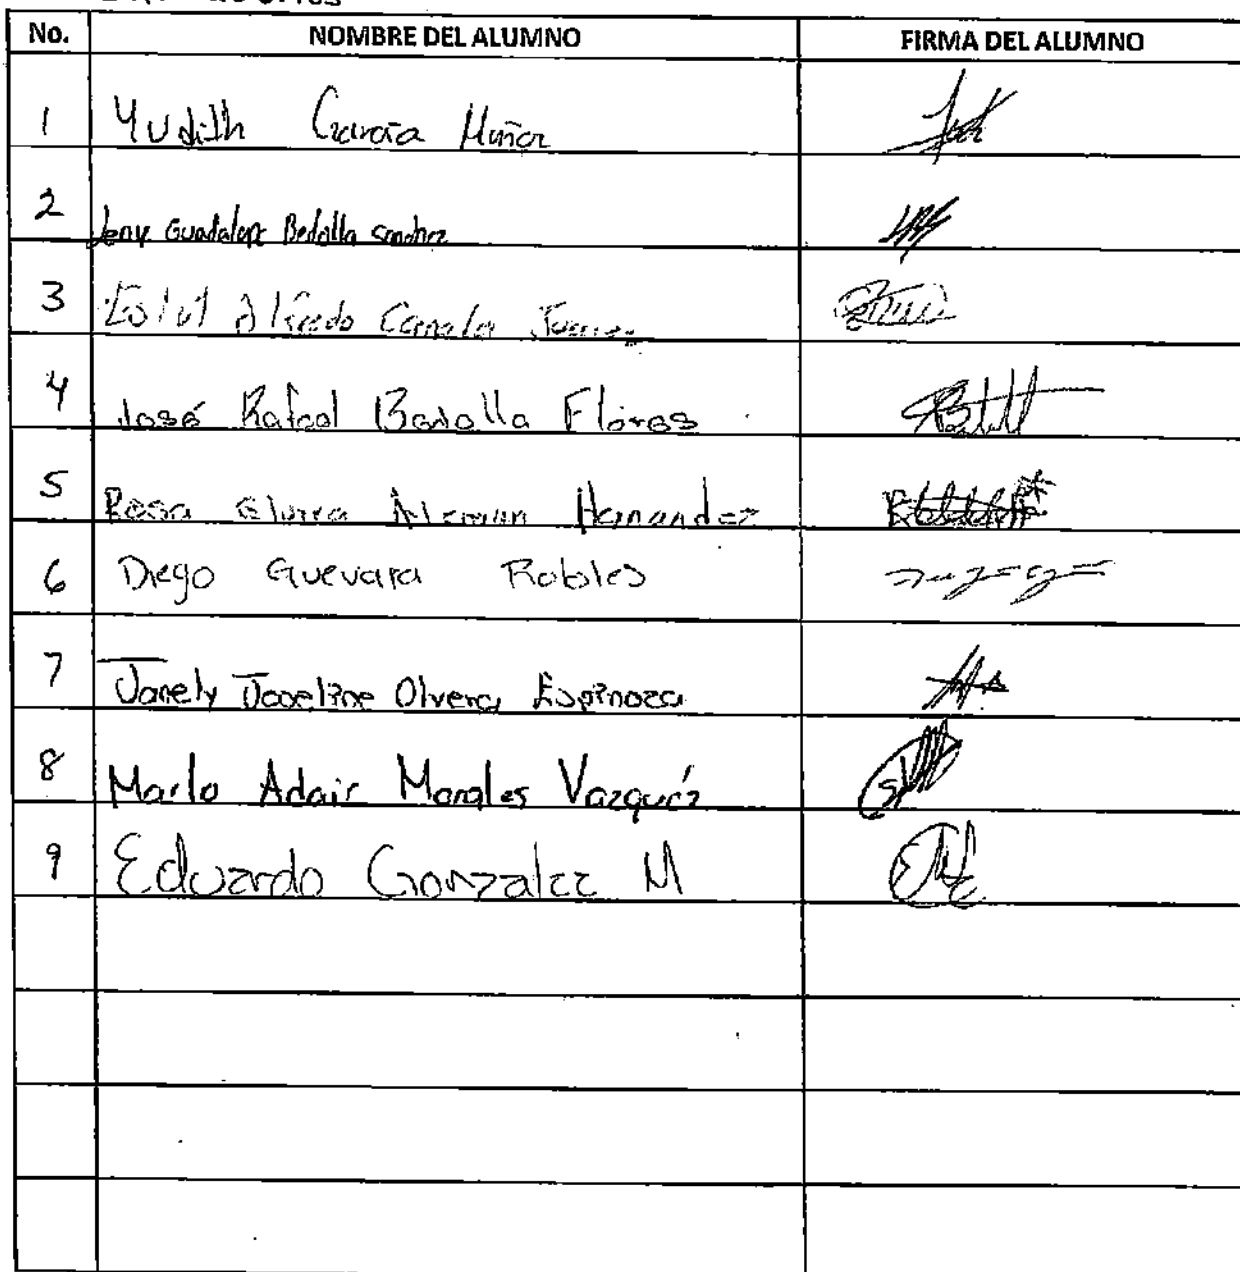 No. NOMBRE DEL ALUMNO FIRMA DEL ALUMNO
1 Yudith García Muñoz
2 Jenny Guadalupe Bedolla Sanchez
3 Alfredo Canela Juarez
4 José Rafael Bedolla Flores
5 Rosa Elvira Aleman Hernandez
6 Diego Guevara Robles
7 Janely Joceline Olvera Espinoza
8 Marlo Adair Morales Vazquéz
9 Eduardo Gonzalez M